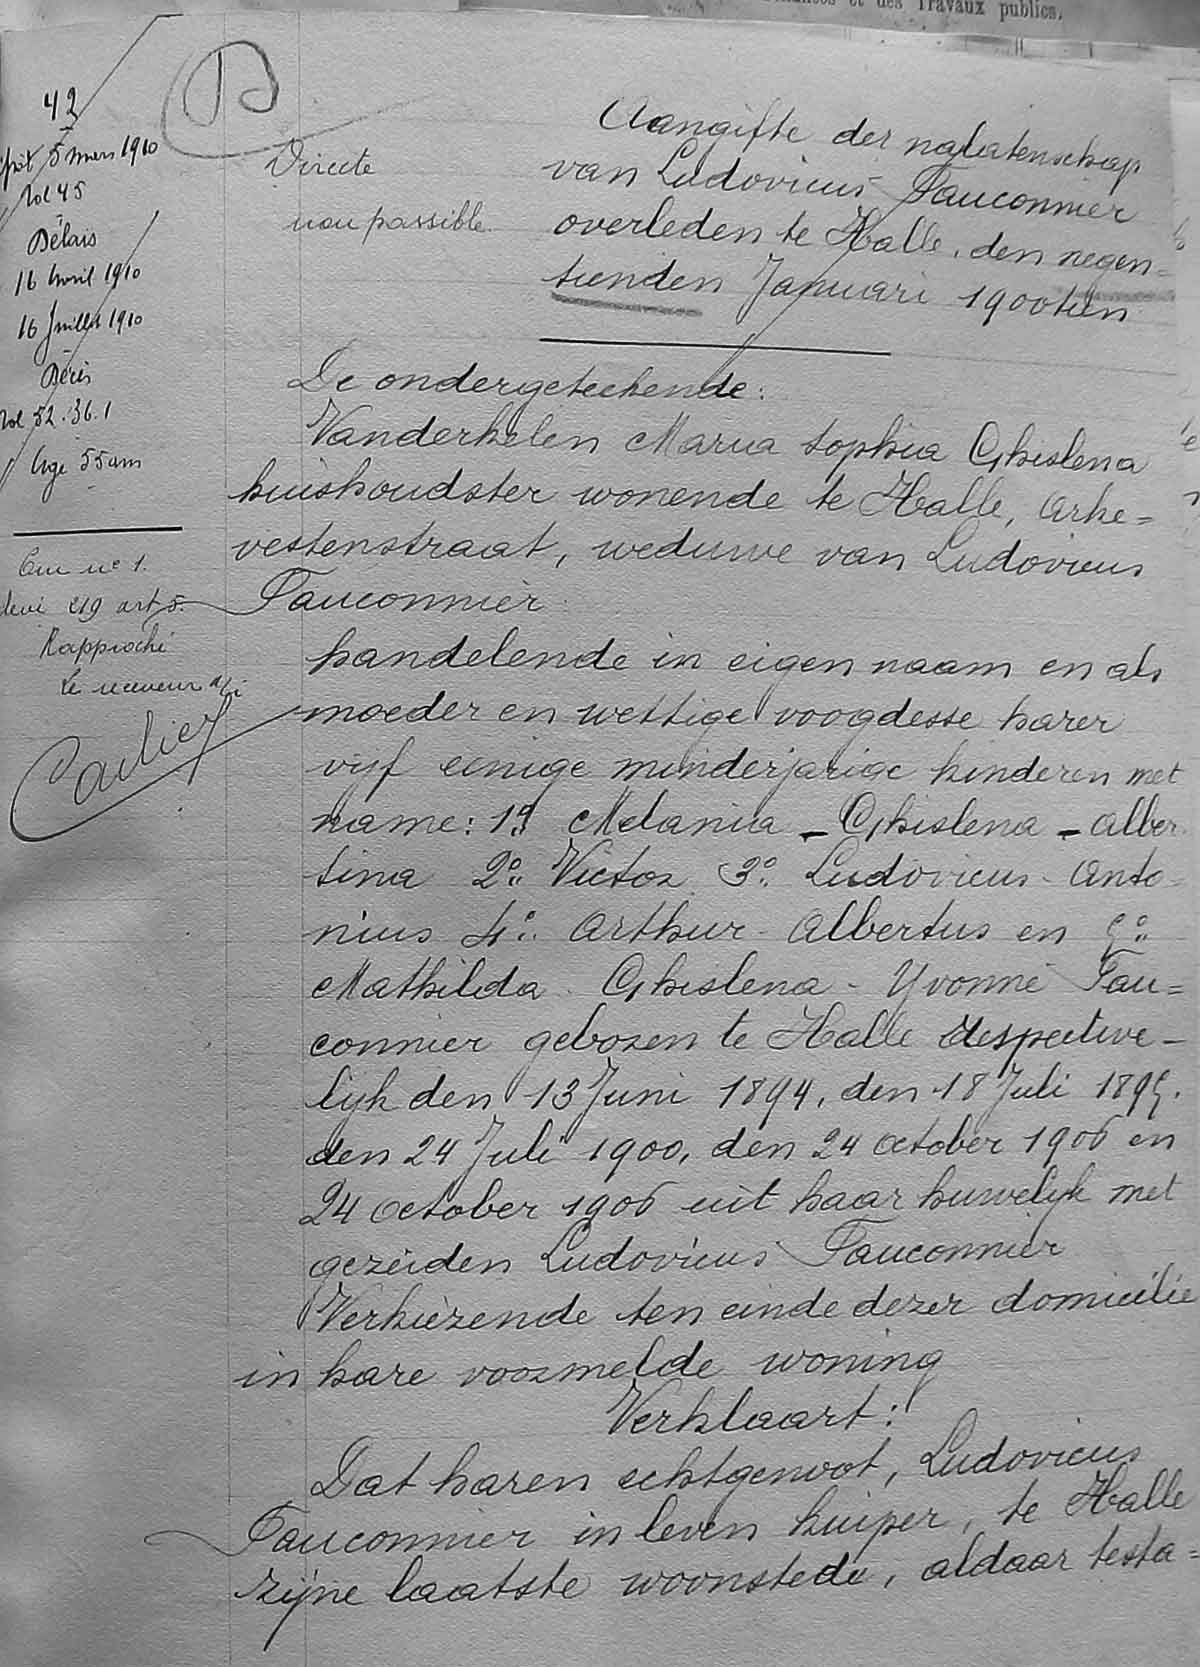 et des Travaux publics.
42
5 mars 1910
Vol 45
Délais
16 Avril 1910
16 Juillet 1910
Décès
Vol 52.36.1
Age 55 ans
B
Directe
non passible.
Aangifte der nalatenschap
van Ludovicus Fauconnier
overleden te Halle, den negen=
tienden Januari 1900tien
De ondergeteekende:
Vanderkelen Maria Sophia Ghislena
huishoudster wonende te Halle, Arke=
vestenstraat, weduwe van Ludovicus
Fauconnier
handelende in eigen naam en als
moeder en wettige voogdesse harer
vijf eenige minderjarige kinderen met
name: 1º Melania - Ghislena - Alber
tina 2º Victor 3º Ludovicus - Anto-
nius 4º Arthur - Albertus en 5º
Mathilda - Ghislena - Yvonne Fau=
connier geboren te Halle respective-
lijk den 13 Juni 1894, den 18 Juli 1895.
den 24 Juli 1900, den 24 October 1906 en
24 October 1906 uit haar huwelijk met
gezeiden Ludovicus Fauconnier
Verkiezende ten einde dezer domicilie
in hare voormelde woning
Verklaart:
Dat haren echtgenoot, Ludovicus
Fauconnier in leven kuiper, te Halle
zijne laatste woonstede, aldaar testa=
nº 1.
219 art 5.
Rapproché
Le receveur a/i